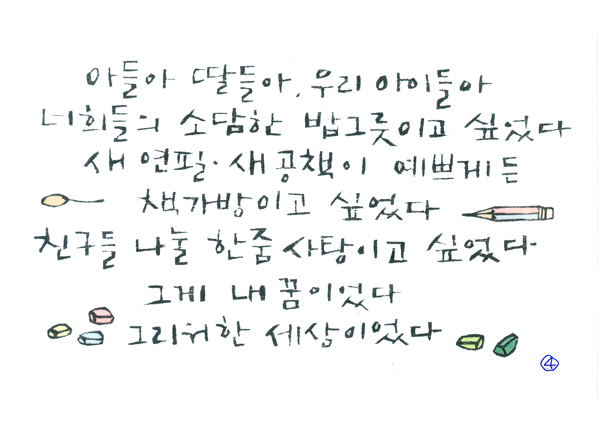 아들아 딸들아, 우리 아이들아
너희들의 소담한 밥그릇이고 싶었다
새 연필·새 공책이 예쁘게 든
책가방이고 싶었다
친구들 나눌 한줌 사탕이고 싶었다·
그게 내 꿈이었다
그리워한 세상이었다
④